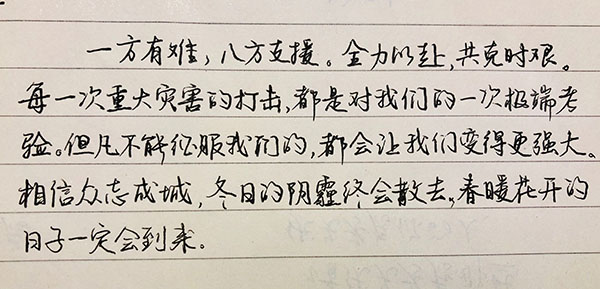 一方有难，八方支援。全力以赴，共克时艰。
每一次重大灾害的打击，都是对我们的一次极端考
验。但凡不能征服我们的，都会让我们变得更强大。
相信众志成城，冬日的阴霾终会散去，春暖花开的
日子一定会到来。